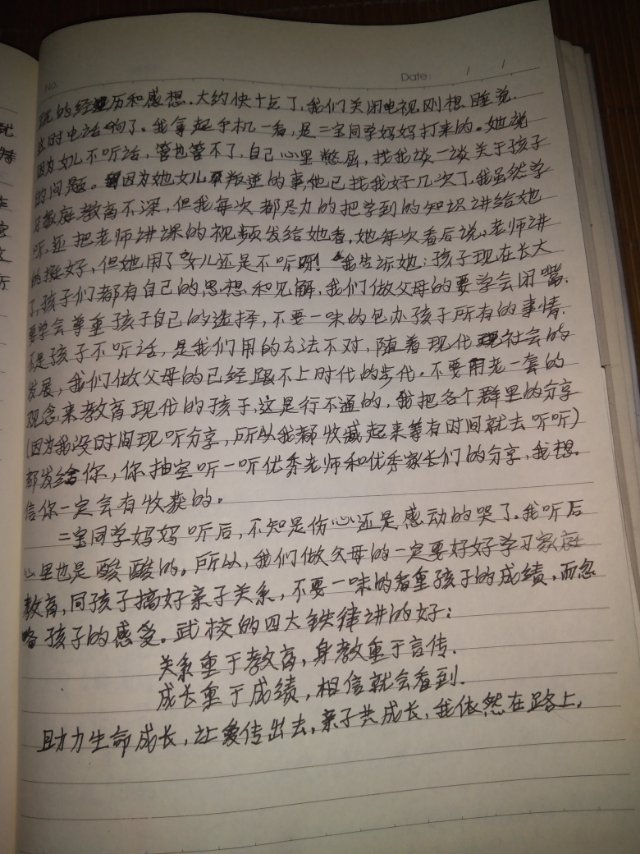 No
Date: / /
我的经历和感想。大约快十点了,我们关闭电视刚想睡觉。
这时电话响了。我拿起手机一看,是二宝同学妈妈打来的。她说
因为女儿不听话,管也管不了,自己心里憋屈,找我谈一谈关于孩子
的问题。因为她女儿叛逆的事,他已找我好几次了。我虽然学
家庭教育不深,但我每次都尽力的把学到的知识讲给她
听,并把老师讲课的视频发给她看,她每次看后说,老师讲
的挺好,但她用了女儿还是不听呀!我告诉她:孩子现在长大
了,孩子们都有自己的思想和见解,我们做父母的要学会闭嘴。
要学会尊重孩子自己的选择,不要一味的包办孩子所有的事情。
不是孩子不听话,是我们用的方法不对,随着现代社会的
发展,我们做父母的已经跟不上时代的步代。不要用老一套的
观念来教育现代的孩子,这是行不通的,我把各个群里的分享
(因为我没时间现听分享,所以我都收藏起来等有时间就去听听)
都发给你,你抽空听一听优秀老师和优秀家长们的分享,我想。
信你一定会有收获的。
二宝同学妈妈听后,不知是伤心还是感动的哭了。我听后
心里也是酸酸的。所以,我们做父母的一定要好好学习家庭
教育,同孩子搞好亲子关系,不要一味的看重孩子的成绩,而忽
略孩子的感受。武校的四大铁律讲的好:
关系重于教育,身教重于言传.
成长重于成绩,相信就会看到.
助力生命成长,让爱传出去,亲子共成长,我依然在路上.